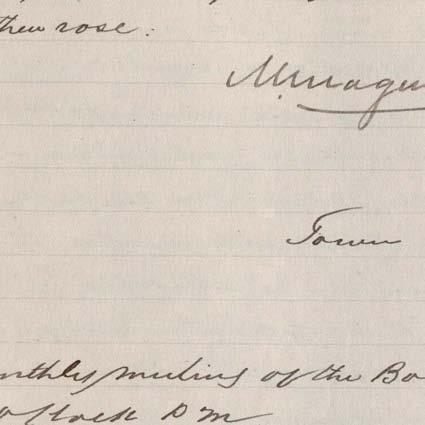 then rose.
Town
nthly meeting of the Bo
o'clock P M